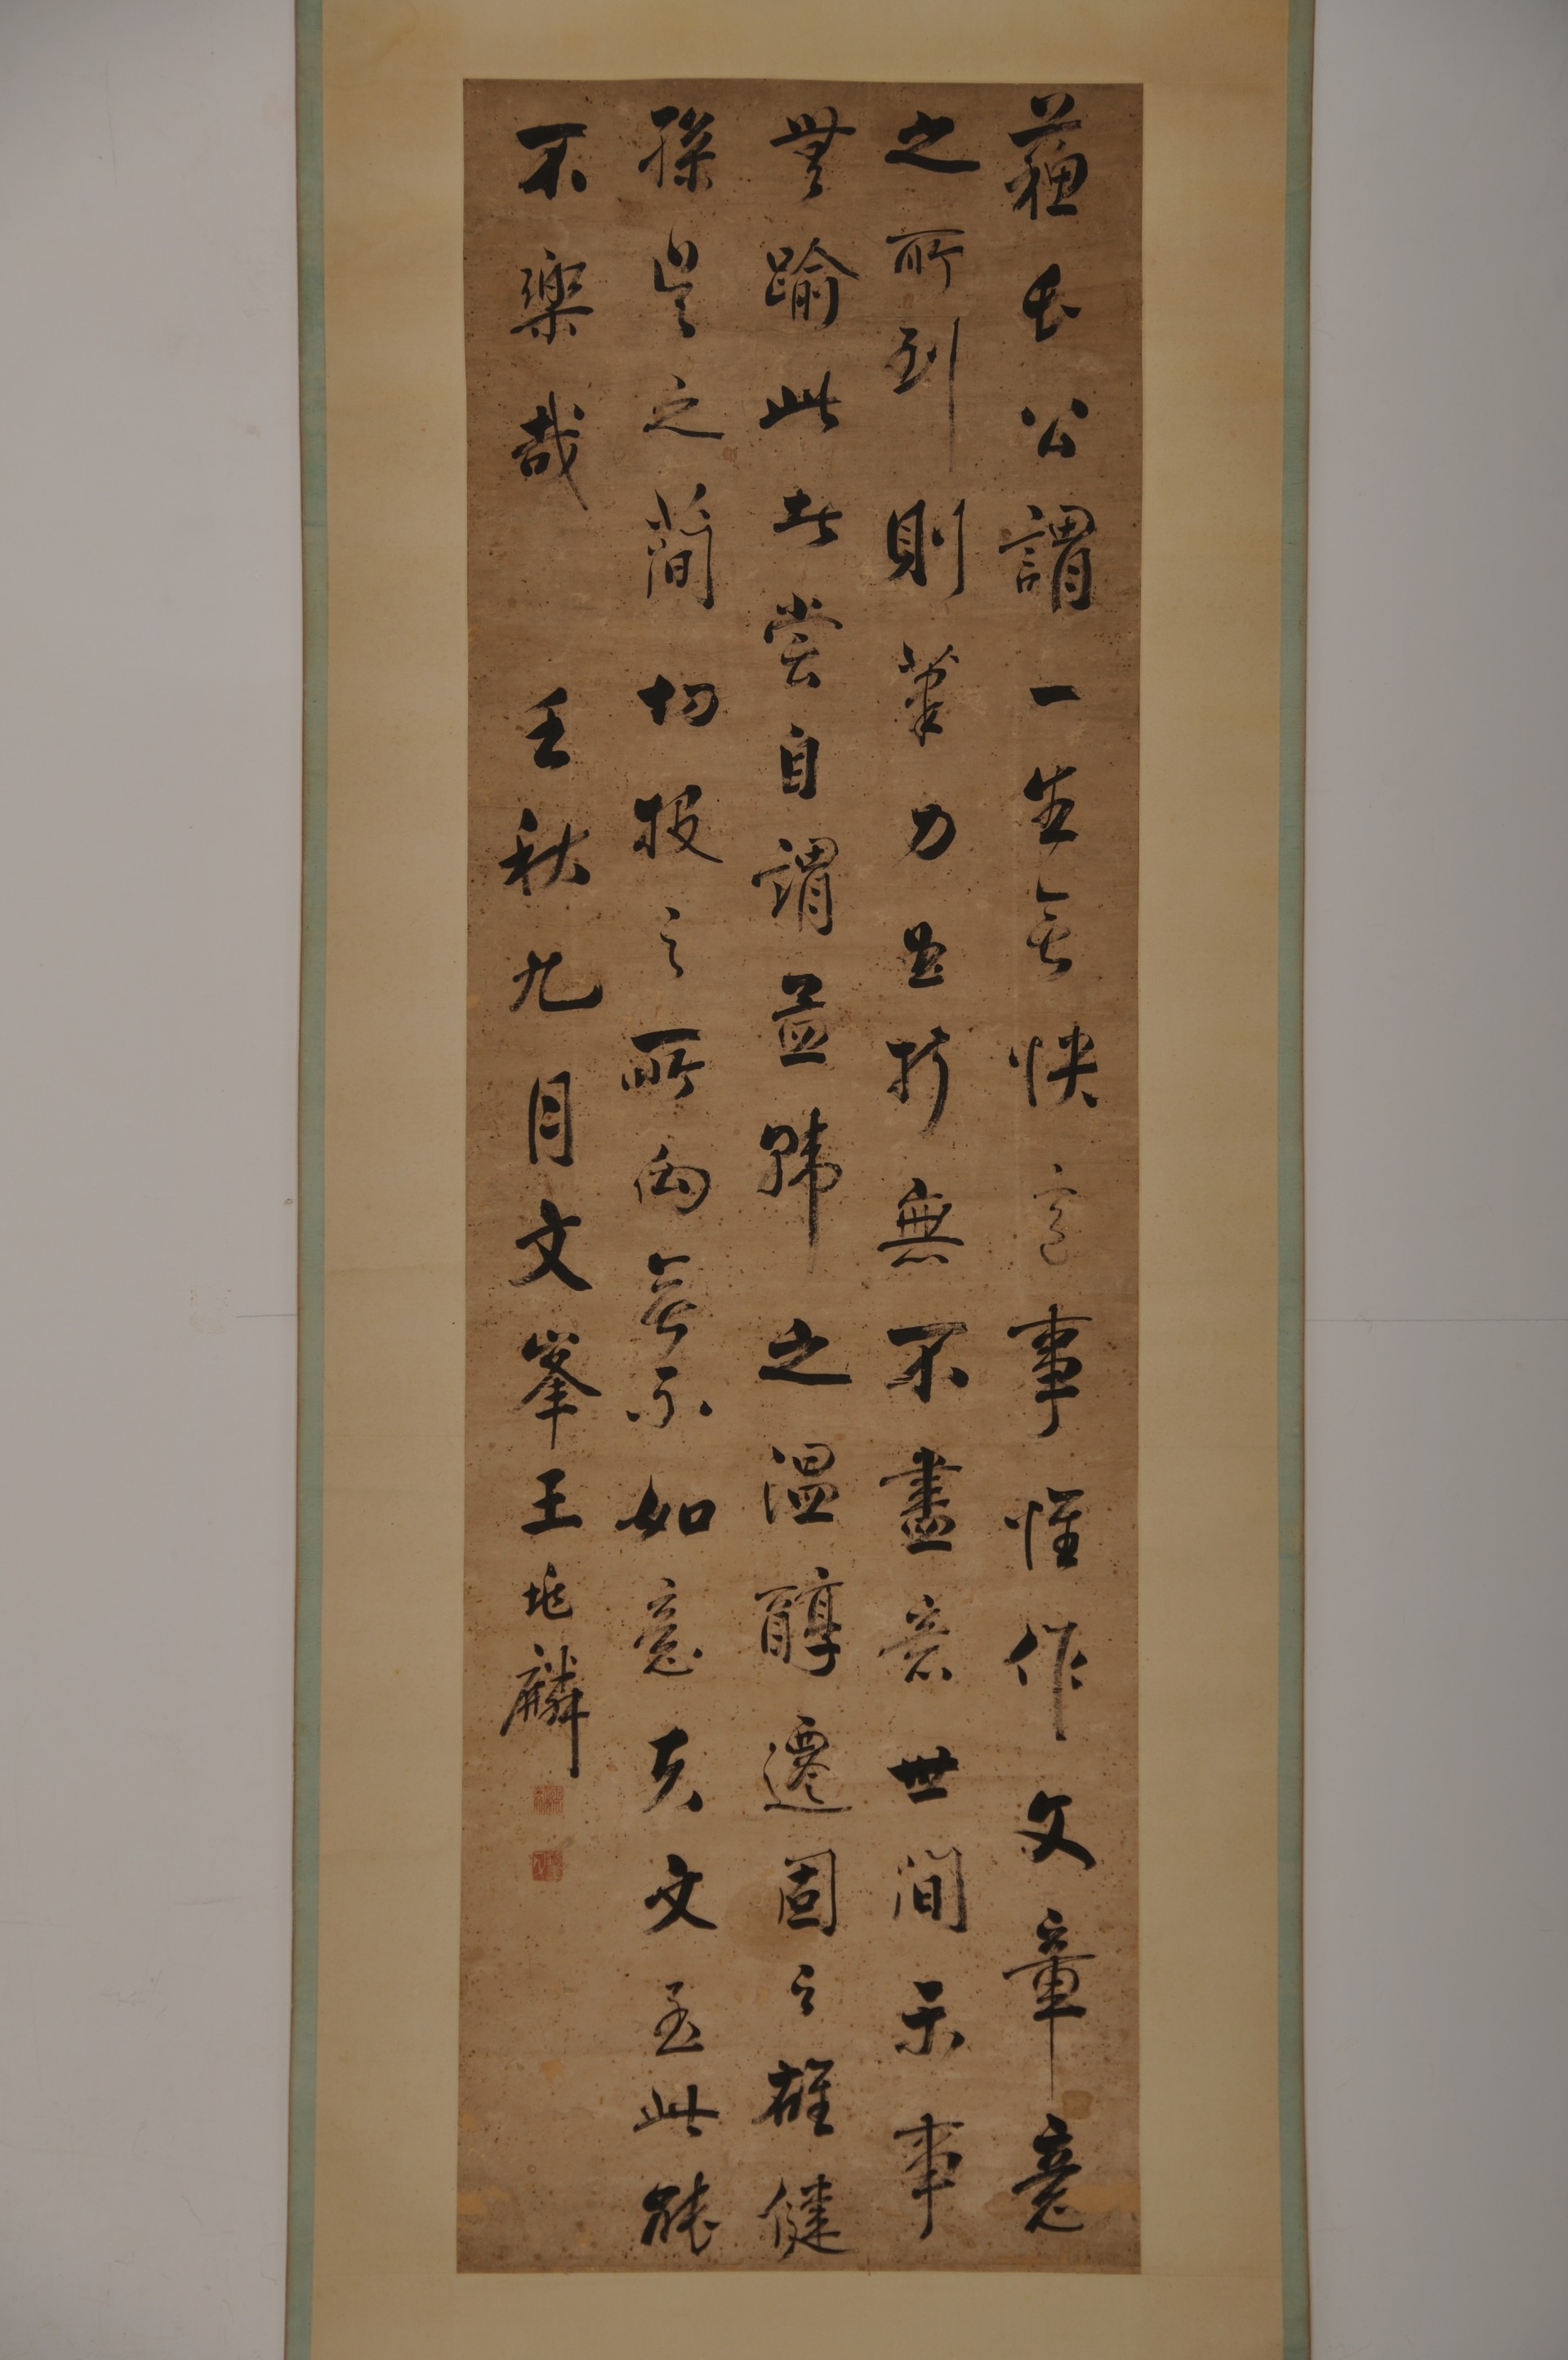 蘓長公謂一生無快意事惟作文章意
之所到則筆力曲折無不盡意世間樂事
無踰此者嘗自謂益歸之温醇遷固之雄健
孫吳之簡切投之所向無不如意夫文至此能
不樂哉 壬秋九月文峯王兆麟